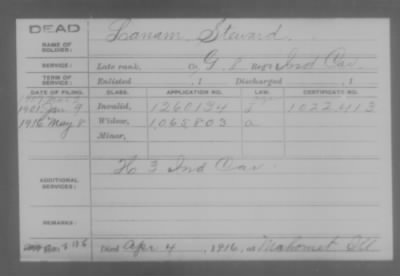 DEAD
NAME OF SOLDIER: Lanam Steward
SERVICE: Late rank, Co. G. 8 Reg't Ind Cav.
TERM OF SERVICE: Enlisted , 1 Discharged , 1
DATE OF FILING. CLASS. APPLICATION NO. LAW. CERTIFICATE NO.
1901 Jan 9 Invalid, 1260134 1022413
1916 May 8 Widow, 1,068803 a
Minor,
ADDITIONAL SERVICES: H 3 Ind Cav
REMARKS:
Died Apr 4 , 1916, at Mahomet Ill